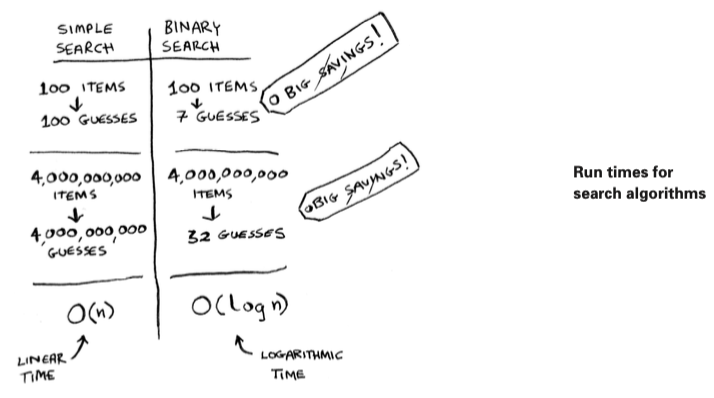 SIMPLE
SEARCH
BINARY
SEARCH
100 ITEMS
100 GUESSES
100 ITEMS
7 GUESSES
BIG SAVINGS!
4,000,000,000
ITEMS
4,000,000,000
GUESSES
4,000,000,000
ITEMS
32 GUESSES
BIG SAVINGS!
O(n)
O(log n)
LINEAR
TIME
LOGARITHMIC
TIME
Run times for
search algorithms